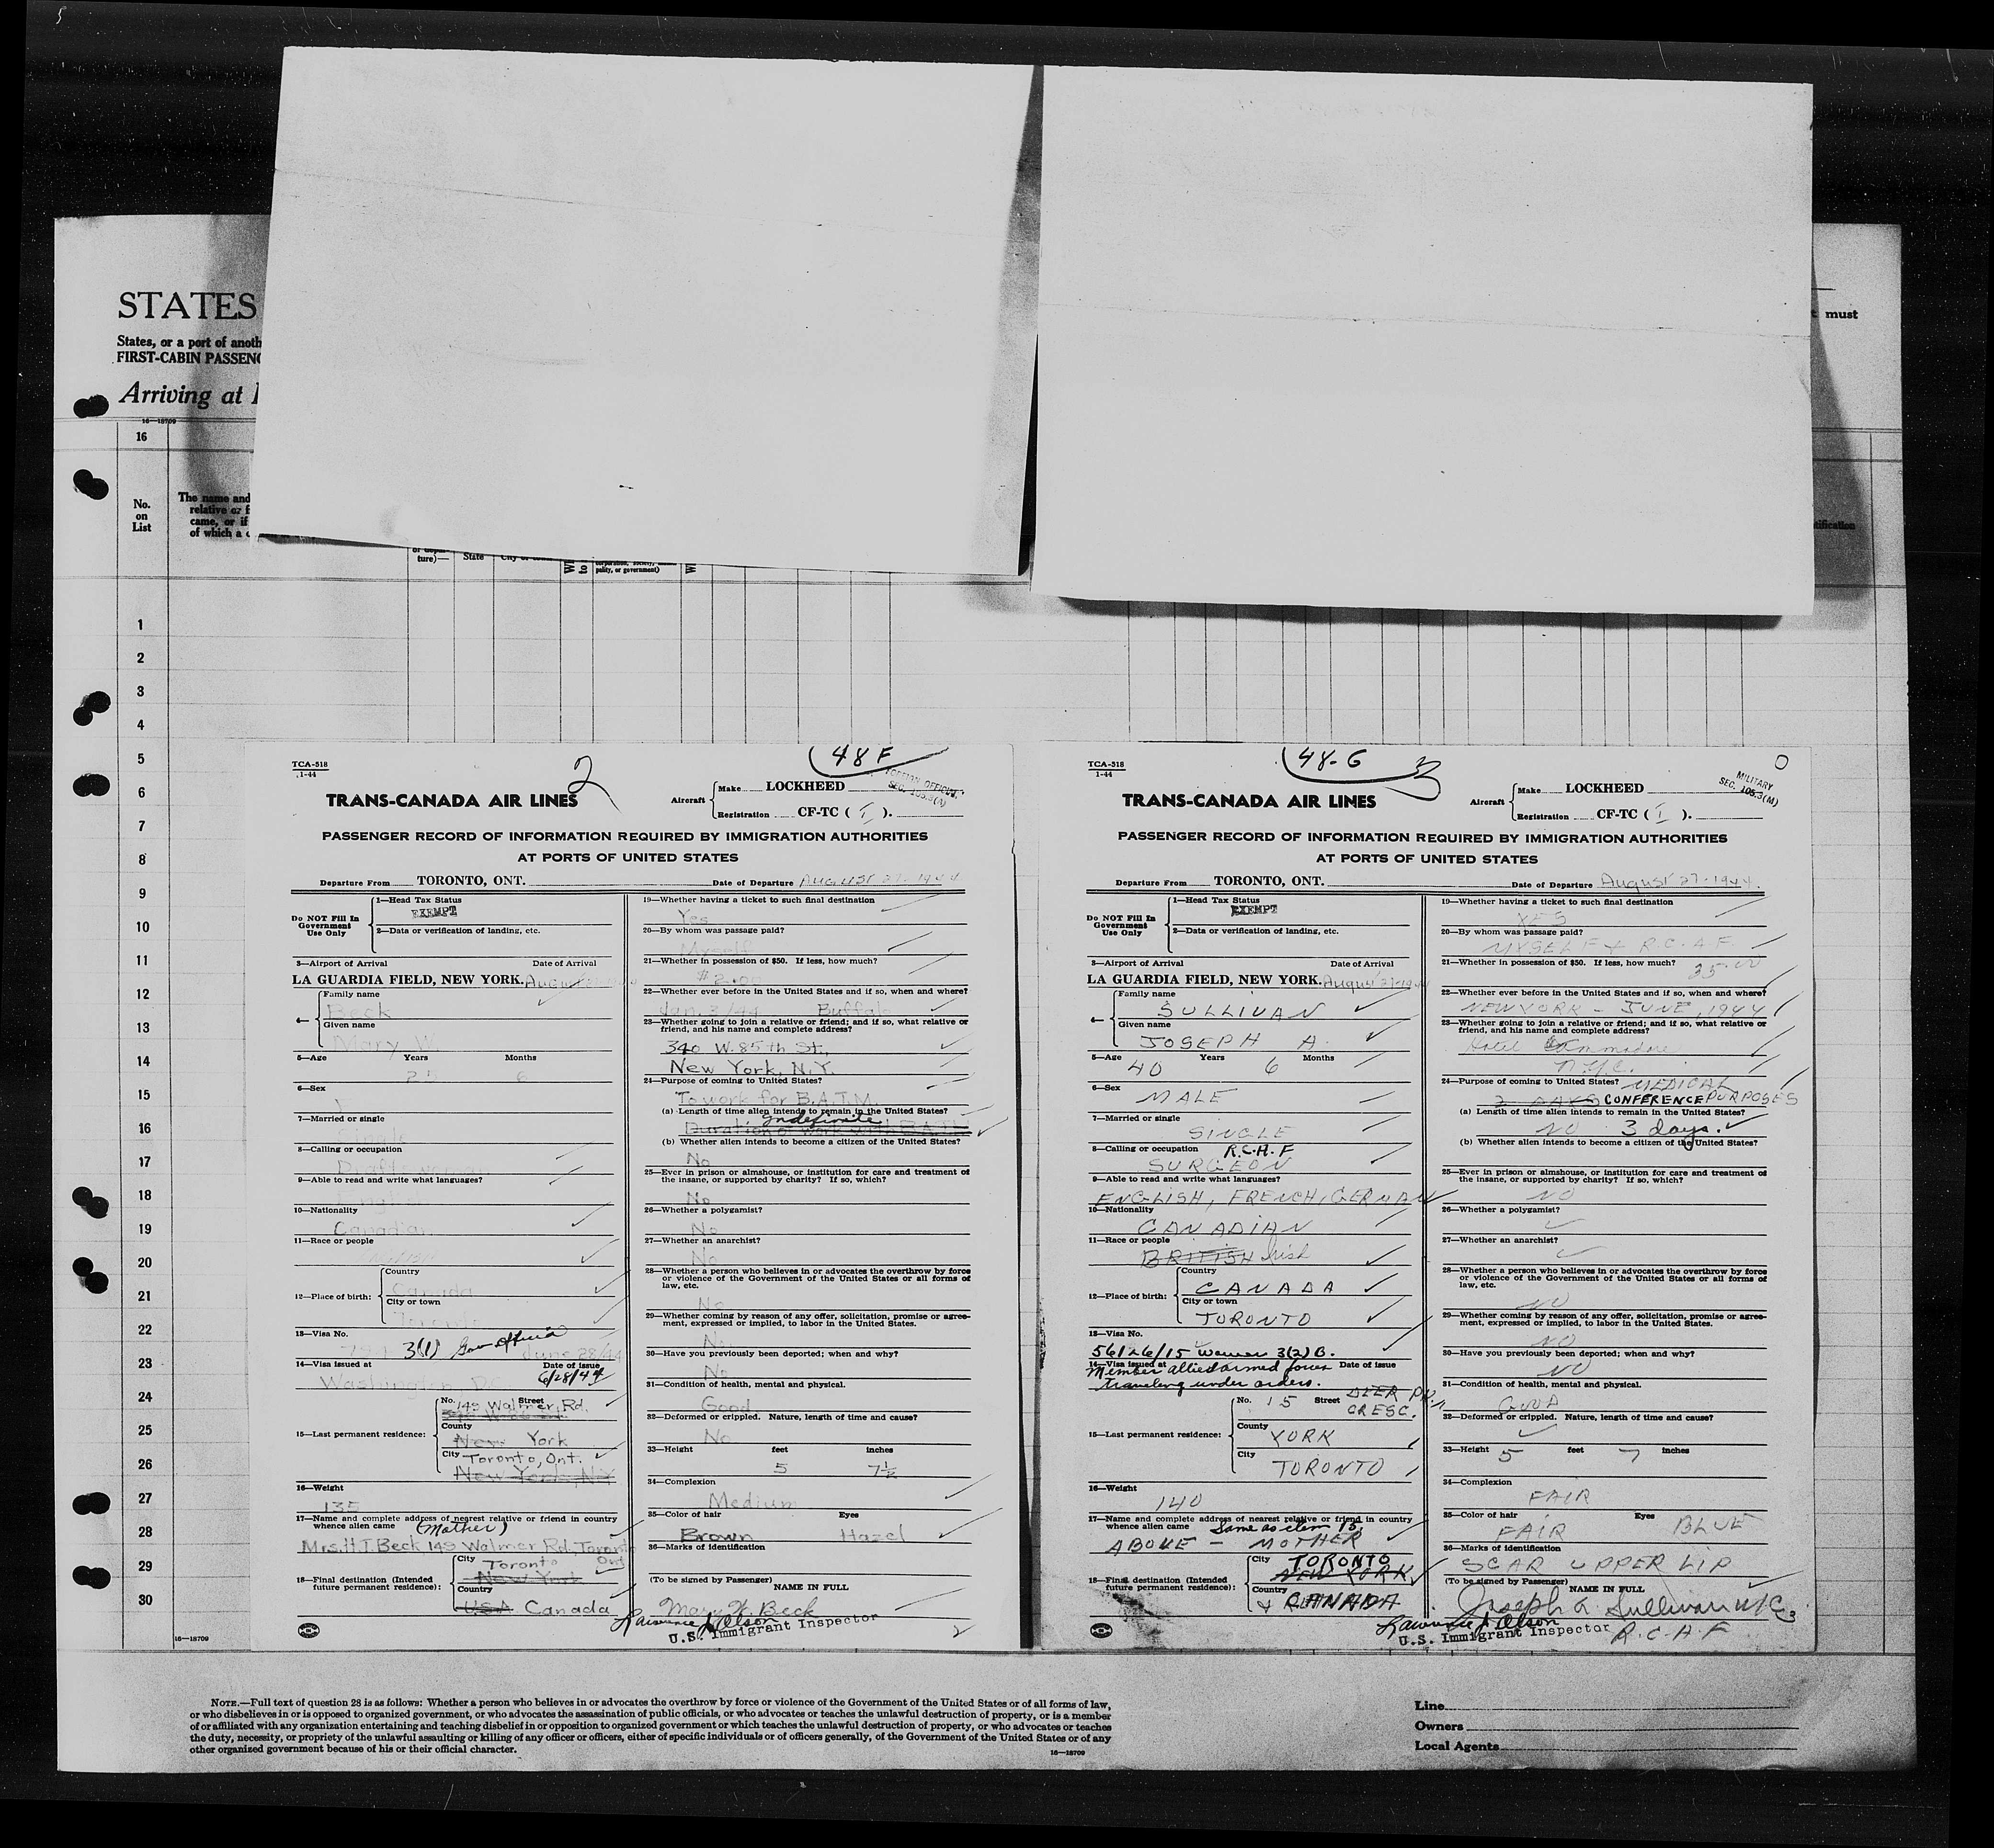 5
STATES
States, or a port of anoth
FIRST-CABIN PASSENG
Arriving at
must
16—18709
16
No.
on
List
The name and
relative or f
came, or if
of which a c
tification
ture)—
State
to
pality, or government)
1
2
3
4
5
6
7
8
9
10
11
12
13
14
15
16
17
18
19
20
21
22
23
24
25
26
27
28
29
30
16—18709
48 F
TCA-518
1-44
2
TRANS-CANADA AIR LINES
Aircraft
Make LOCKHEED
Registration CF-TC ( I ).
FOREIGN OFFICIAL
SEC. 105.3(A)
PASSENGER RECORD OF INFORMATION REQUIRED BY IMMIGRATION AUTHORITIES
AT PORTS OF UNITED STATES
Departure From TORONTO, ONT.
Date of Departure August 27-1944
Do NOT Fill In
Government
Use Only
1—Head Tax Status
EXEMPT
2—Data or verification of landing, etc.
3—Airport of Arrival Date of Arrival
LA GUARDIA FIELD, NEW YORK.
4— Family name
Beck
Given name
Mary W.
5—Age Years Months
25 6
6—Sex
7—Married or single
Single
8—Calling or occupation
Draftswoman
9—Able to read and write what languages?
English
10—Nationality
Canadian
11—Race or people
12—Place of birth:
Country
Canada
City or town
Toronto
13—Visa No.
3(1) Gov Official June 28/44
14—Visa issued at Date of issue
Washington, D.C. 6/28/44
15—Last permanent residence:
No. Street
149 Walmer Rd.
County
New York
City Toronto, Ont.
New York, N.Y.
16—Weight
135
17—Name and complete address of nearest relative or friend in country
whence alien came (Mother)
Mrs. H.J. Beck 149 Walmer Rd., Toronto
Ont
18—Final destination (Intended
future permanent residence):
City Toronto
New York
Country
USA Canada
19—Whether having a ticket to such final destination
Yes
20—By whom was passage paid?
Myself
21—Whether in possession of $50. If less, how much?
$2.00
22—Whether ever before in the United States and if so, when and where?
Jan. 3/44 Buffalo
23—Whether going to join a relative or friend; and if so, what relative or
friend, and his name and complete address?
340 W. 85th St.,
New York, N.Y.
24—Purpose of coming to United States?
To work for B.A.T.M.
(a) Length of time alien intends to remain in the United States?
Indefinite
Duration of work with B.A.T.M.
(b) Whether alien intends to become a citizen of the United States?
No
25—Ever in prison or almshouse, or institution for care and treatment of
the insane, or supported by charity? If so, which?
No
26—Whether a polygamist?
No
27—Whether an anarchist?
No
28—Whether a person who believes in or advocates the overthrow by force
or violence of the Government of the United States or all forms of
law, etc.
No
29—Whether coming by reason of any offer, solicitation, promise or agree-
ment, expressed or implied, to labor in the United States.
No
30—Have you previously been deported; when and why?
No
31—Condition of health, mental and physical.
Good
32—Deformed or crippled. Nature, length of time and cause?
No
33—Height feet inches
5 7½
34—Complexion
Medium
35—Color of hair Eyes
Brown Hazel
36—Marks of identification
(To be signed by Passenger)
NAME IN FULL
Mary W. Beck
Lawrence J. Olson
U.S. Immigrant Inspector
2
48-G
TCA-518
1-44
3
TRANS-CANADA AIR LINES
Aircraft
Make LOCKHEED
Registration CF-TC ( I ).
MILITARY
SEC. 105.3(M)
PASSENGER RECORD OF INFORMATION REQUIRED BY IMMIGRATION AUTHORITIES
AT PORTS OF UNITED STATES
Departure From TORONTO, ONT.
Date of Departure August 27-1944.
Do NOT Fill In
Government
Use Only
1—Head Tax Status
EXEMPT
2—Data or verification of landing, etc.
3—Airport of Arrival Date of Arrival
LA GUARDIA FIELD, NEW YORK. August 27-1944
4— Family name
SULLIVAN
Given name
JOSEPH A.
5—Age Years Months
40 6
6—Sex
MALE
7—Married or single
SINGLE
8—Calling or occupation R.C.A.F
SURGEON
9—Able to read and write what languages?
ENGLISH, FRENCH, GERMAN
10—Nationality
CANADIAN
11—Race or people
BRITISH Irish
12—Place of birth:
Country
CANADA
City or town
TORONTO
13—Visa No.
56126/15 Waiver 3(2)B.
14—Visa issued at Date of issue
Member allied armed forces
traveling under orders.
15—Last permanent residence:
No. 15 Street DEER PK.
CRESC.
County
YORK
City
TORONTO
16—Weight
140
17—Name and complete address of nearest relative or friend in country
whence alien came Same as item 15.
ABOVE - MOTHER
18—Final destination (Intended
future permanent residence):
City TORONTO
NEW YORK
Country
CANADA
19—Whether having a ticket to such final destination
YES
20—By whom was passage paid?
MYSELF + R.C.A.F.
21—Whether in possession of $50. If less, how much?
35.00
22—Whether ever before in the United States and if so, when and where?
NEW YORK - JUNE, 1944
23—Whether going to join a relative or friend; and if so, what relative or
friend, and his name and complete address?
Hotel Commodore
N.Y.C.
24—Purpose of coming to United States? MEDICAL
2 DAYS CONFERENCE PURPOSES
(a) Length of time alien intends to remain in the United States?
NO 3 days.
(b) Whether alien intends to become a citizen of the United States?
25—Ever in prison or almshouse, or institution for care and treatment of
the insane, or supported by charity? If so, which?
NO
26—Whether a polygamist?
27—Whether an anarchist?
28—Whether a person who believes in or advocates the overthrow by force
or violence of the Government of the United States or all forms of
law, etc.
NO
29—Whether coming by reason of any offer, solicitation, promise or agree-
ment, expressed or implied, to labor in the United States.
NO
30—Have you previously been deported; when and why?
NO
31—Condition of health, mental and physical.
GOOD
32—Deformed or crippled. Nature, length of time and cause?
33—Height 5 feet 7 inches
34—Complexion
FAIR
35—Color of hair Eyes
FAIR BLUE
36—Marks of identification
SCAR UPPER LIP
(To be signed by Passenger)
NAME IN FULL
Joseph A. Sullivan W/C
3
Lawrence J. Olson
U.S. Immigrant Inspector R.C.A.F
NOTE.—Full text of question 28 is as follows: Whether a person who believes in or advocates the overthrow by force or violence of the Government of the United States or of all forms of law,
or who disbelieves in or is opposed to organized government, or who advocates the assassination of public officials, or who advocates or teaches the unlawful destruction of property, or is a member
of or affiliated with any organization entertaining and teaching disbelief in or opposition to organized government or which teaches the unlawful destruction of property, or who advocates or teaches
the duty, necessity, or propriety of the unlawful assaulting or killing of any officer or officers, either of specific individuals or of officers generally, of the Government of the United States or of any
other organized government because of his or their official character.
16—18709
Line
Owners
Local Agents